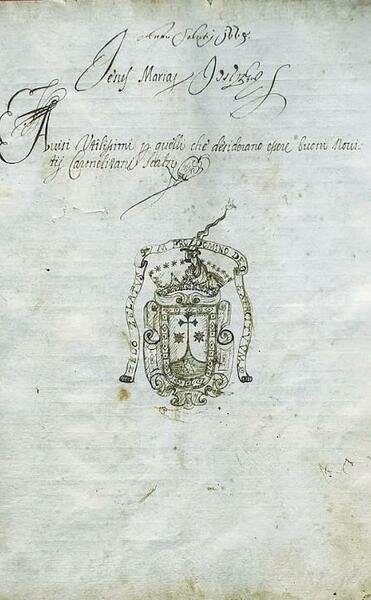 Jesus Maria Joseph
Auisi Vtilissimi p quelli che desiderano essere buoni Noui-
tij Carmelitani Scalzi
ZELO ZELATVS SVM PRO DOMINO DEO EXERCITVVM